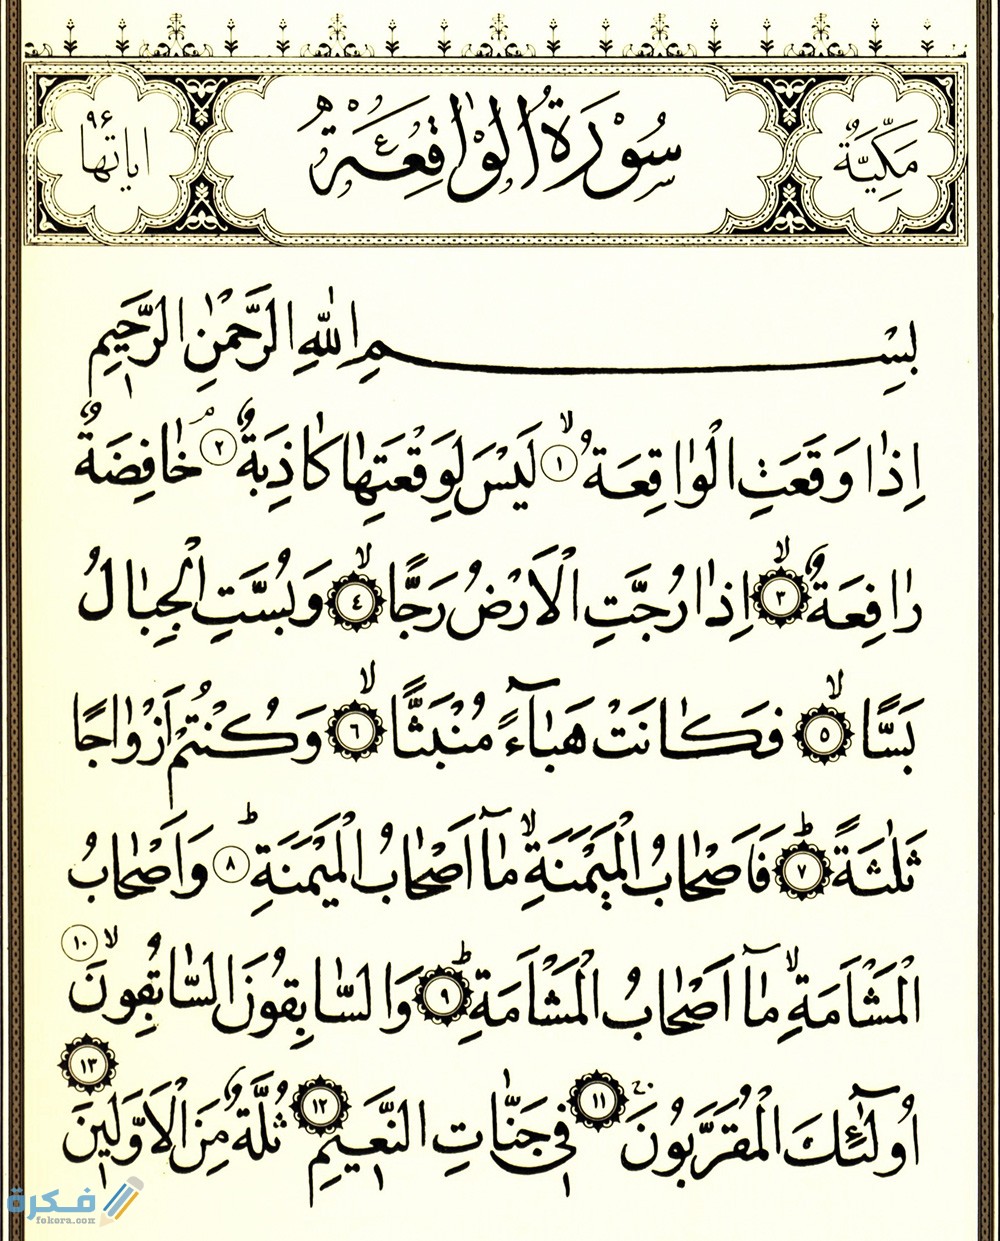 مَكِّيَّةٌ سُورَةُ الْوٰاقِعَةِ اٰيٰاتُهٰا ٩٦
بِسْمِ اللّٰهِ الرَّحْمٰنِ الرَّحٖيمِ
اِذٰا وَقَعَتِ الْوٰاقِعَةُ ۙ ﴿١﴾ لَيْسَ لِوَقْعَتِهٰا كٰاذِبَةٌ ۘ ﴿٢﴾ خٰافِضَةٌ
رٰافِعَةٌ ۙ ﴿٣﴾ اِذٰا رُجَّتِ الْاَرْضُ رَجًّا ۙ ﴿٤﴾ وَبُسَّتِ الْجِبٰالُ
بَسًّا ۙ ﴿٥﴾ فَكٰانَتْ هَبٰٓاءً مُنْبَثًّا ۙ ﴿٦﴾ وَكُنْتُمْ اَزْوٰاجًا
ثَلٰثَةً ؕ ﴿٧﴾ فَاَصْحٰابُ الْمَيْمَنَةِ ۙ مٰٓا اَصْحٰابُ الْمَيْمَنَةِ ؕ ﴿٨﴾ وَاَصْحٰابُ
الْمَشْاَمَةِ ۙ مٰٓا اَصْحٰابُ الْمَشْاَمَةِ ؕ ﴿٩﴾ وَالسّٰابِقُونَ السّٰابِقُونَ ۙ ﴿١٠﴾
اُولٰٓئِكَ الْمُقَرَّبُونَ ۚ ﴿١١﴾ فٖي جَنّٰاتِ النَّعٖيمِ ﴿١٢﴾ ثُلَّةٌ مِنَ الْاَوَّلٖينَ ﴿١٣﴾
فكرة
fekera.com